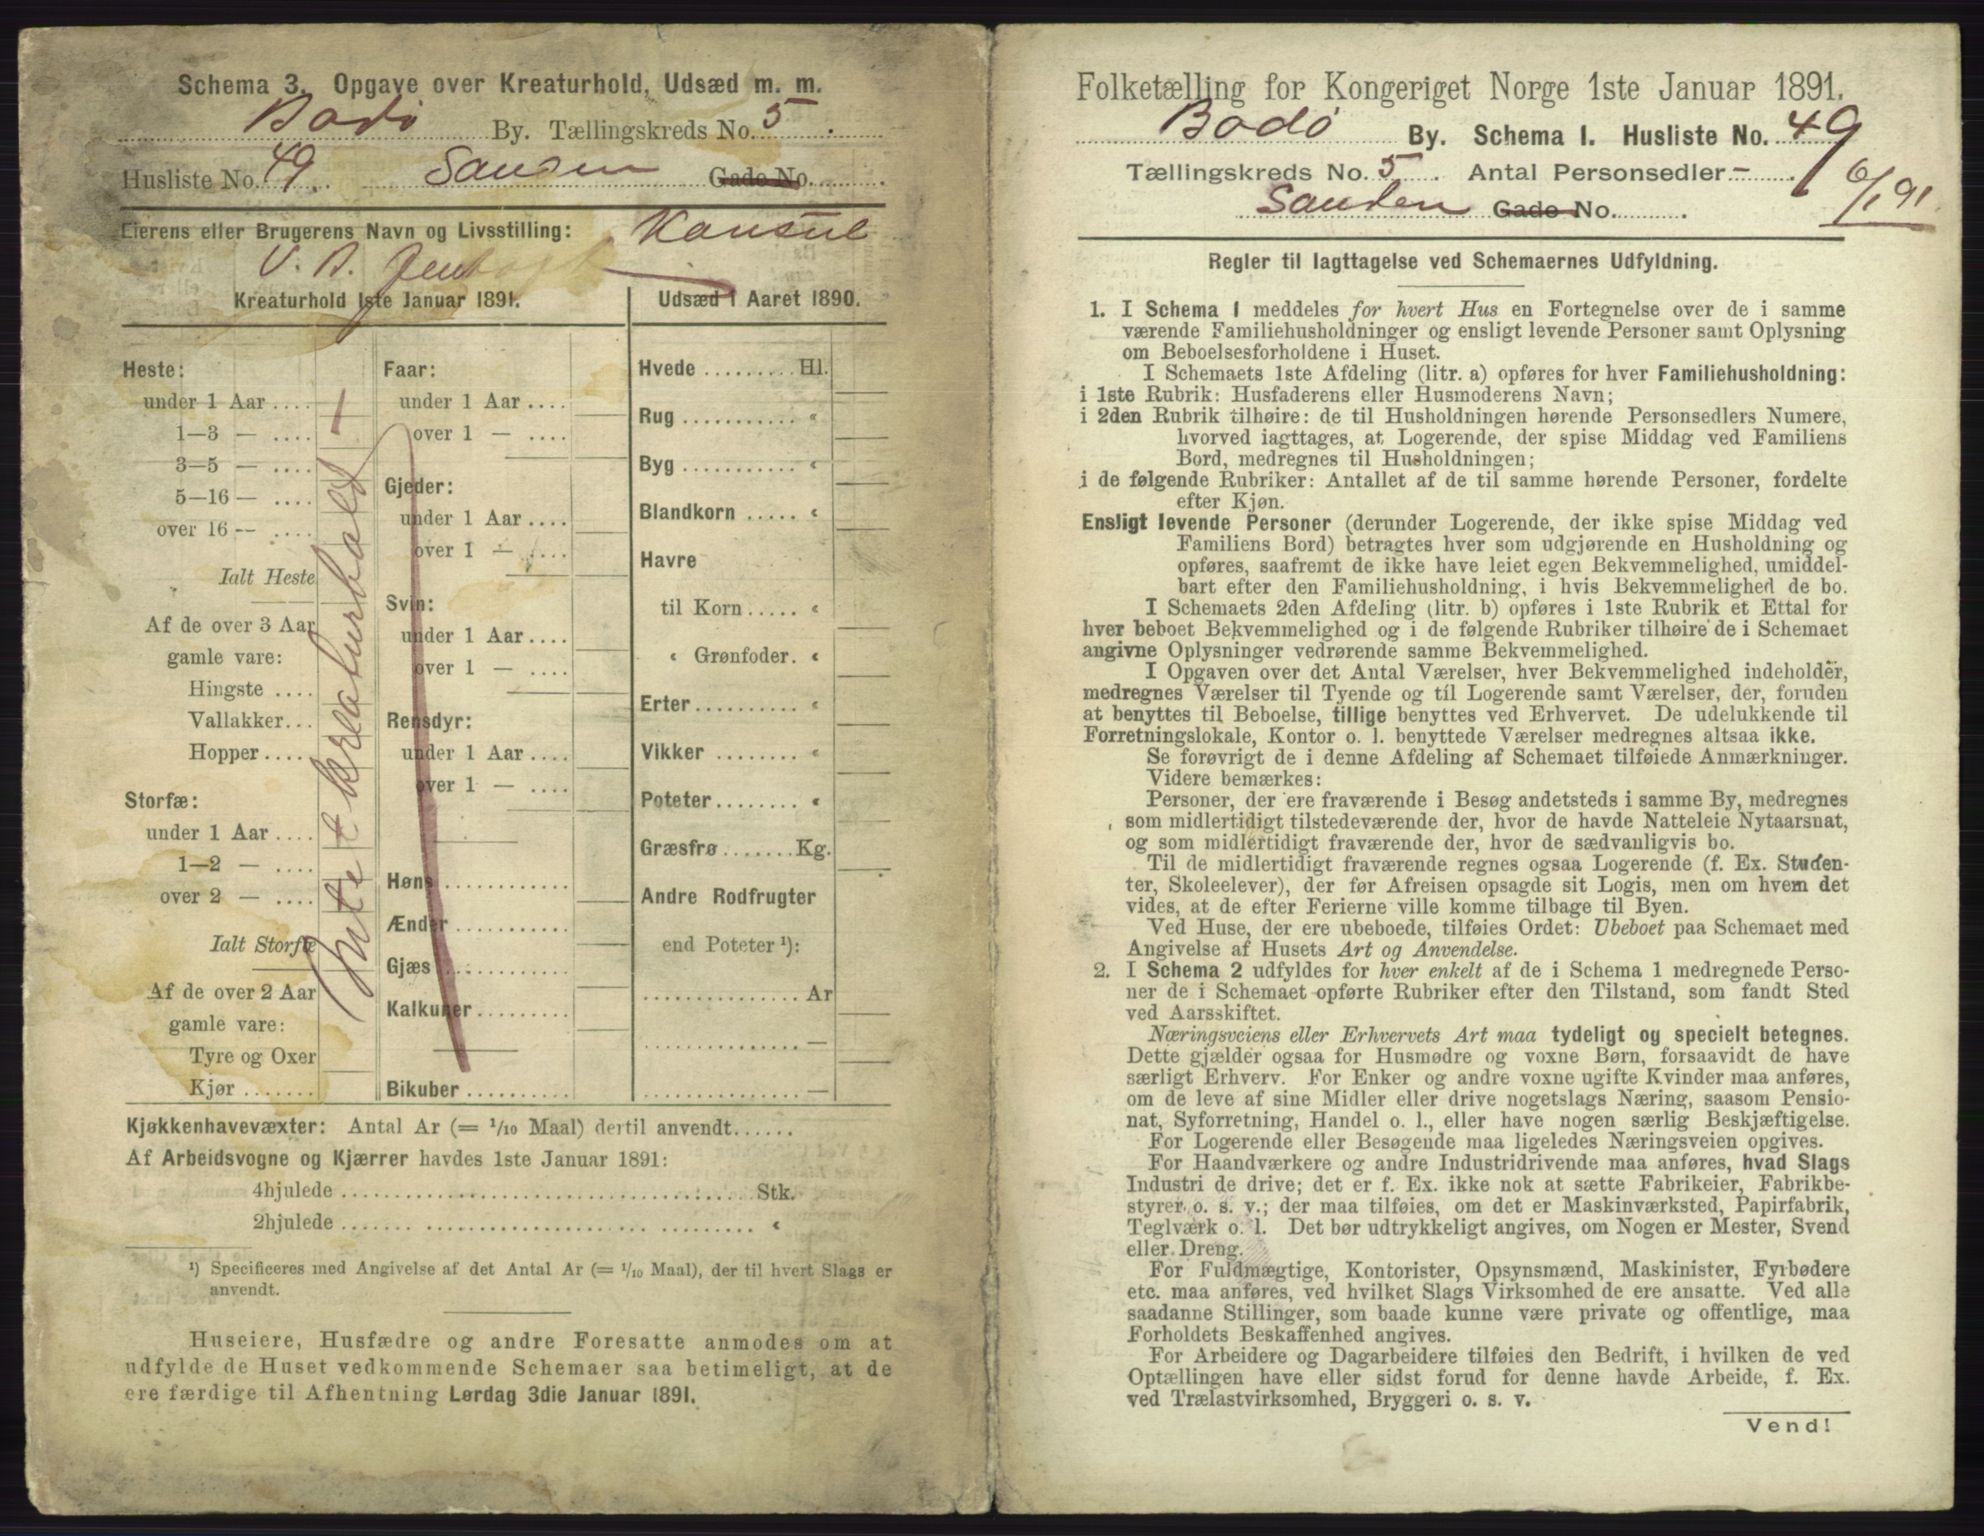 Schema 3. Opgave over Kreaturhold, Udsæd m. m.
Bodø By. Tællingskreds No. 5.
Husliste No. 49. Sanden Gade No.
Eierens eller Brugerens Navn og Livsstilling: Konsul
V. B. Jentoft
Kreaturhold 1ste Januar 1891.
Heste:
under 1 Aar
1—3 —
3—5 —
5—16 —
over 16 —
Ialt Heste
Af de over 3 Aar
gamle vare:
Hingste
Vallakker
Hopper
Storfæ:
under 1 Aar
1—2 —
over 2 —
Ialt Storfæ
Af de over 2 Aar
gamle vare:
Tyre og Oxer
Kjør
Intet kreaturhold
Faar:
under 1 Aar
over 1 —
Gjeder:
under 1 Aar
over 1 —
Svin:
under 1 Aar
over 1 —
Rensdyr:
under 1 Aar
over 1 —
Høns
Ænder
Gjæs
Kalkuner
Bikuber
Udsæd i Aaret 1890.
Hvede Hl.
Rug "
Byg "
Blandkorn "
Havre
til Korn "
" Grønfoder. "
Erter "
Vikker "
Poteter "
Græsfrø Kg.
Andre Rodfrugter
end Poteter ¹):
Ar
—
—
Kjøkkenhavevæxter: Antal Ar (= 1/10 Maal) dertil anvendt
Af Arbeidsvogne og Kjærrer havdes 1ste Januar 1891:
4hjulede Stk.
2hjulede "
¹) Specificeres med Angivelse af det Antal Ar (= 1/10 Maal), der til hvert Slags er
anvendt.
Huseiere, Husfædre og andre Foresatte anmodes om at
udfylde de Huset vedkommende Schemaer saa betimeligt, at de
ere færdige til Afhentning Lørdag 3die Januar 1891.
Folketælling for Kongeriget Norge 1ste Januar 1891.
Bodø By. Schema 1. Husliste No. 49
Tællingskreds No. 5. Antal Personsedler -
6/1 91
Sanden Gade No.
Regler til Iagttagelse ved Schemaernes Udfyldning.
1. I Schema 1 meddeles for hvert Hus en Fortegnelse over de i samme
værende Familiehusholdninger og ensligt levende Personer samt Oplysning
om Beboelsesforholdene i Huset.
I Schemaets 1ste Afdeling (litr. a) opføres for hver Familiehusholdning:
i 1ste Rubrik: Husfaderens eller Husmoderens Navn;
i 2den Rubrik tilhøire: de til Husholdningen hørende Personsedlers Numere,
hvorved iagttages, at Logerende, der spise Middag ved Familiens
Bord, medregnes til Husholdningen;
i de følgende Rubriker: Antallet af de til samme hørende Personer, fordelte
efter Kjøn.
Ensligt levende Personer (derunder Logerende, der ikke spise Middag ved
Familiens Bord) betragtes hver som udgjørende en Husholdning og
opføres, saafremt de ikke have leiet egen Bekvemmelighed, umiddel-
bart efter den Familiehusholdning, i hvis Bekvemmelighed de bo.
I Schemaets 2den Afdeling (litr. b) opføres i 1ste Rubrik et Ettal for
hver beboet Bekvemmelighed og i de følgende Rubriker tilhøire de i Schemaet
angivne Oplysninger vedrørende samme Bekvemmelighed.
I Opgaven over det Antal Værelser, hver Bekvemmelighed indeholder,
medregnes Værelser til Tyende og til Logerende samt Værelser, der, foruden
at benyttes til Beboelse, tillige benyttes ved Erhvervet. De udelukkende til
Forretningslokale, Kontor o. l. benyttede Værelser medregnes altsaa ikke.
Se forøvrigt de i denne Afdeling af Schemaet tilføiede Anmærkninger.
Videre bemærkes:
Personer, der ere fraværende i Besøg andetsteds i samme By, medregnes
som midlertidigt tilstedeværende der, hvor de havde Natteleie Nytaarsnat,
og som midlertidigt fraværende der, hvor de sædvanligvis bo.
Til de midlertidigt fraværende regnes ogsaa Logerende (f. Ex. Studen-
ter, Skoleelever), der før Afreisen opsagde sit Logis, men om hvem det
vides, at de efter Ferierne ville komme tilbage til Byen.
Ved Huse, der ere ubeboede, tilføies Ordet: Ubeboet paa Schemaet med
Angivelse af Husets Art og Anvendelse.
2. I Schema 2 udfyldes for hver enkelt af de i Schema 1 medregnede Perso-
ner de i Schemaet opførte Rubriker efter den Tilstand, som fandt Sted
ved Aarsskiftet.
Næringsveiens eller Erhvervets Art maa tydeligt og specielt betegnes.
Dette gjælder ogsaa for Husmødre og voxne Børn, forsaavidt de have
særligt Erhverv. For Enker og andre voxne ugifte Kvinder maa anføres,
om de leve af sine Midler eller drive nogetslags Næring, saasom Pensio-
nat, Syforretning, Handel o. l., eller have nogen særlig Beskjæftigelse.
For Logerende eller Besøgende maa ligeledes Næringsveien opgives.
For Haandværkere og andre Industridrivende maa anføres, hvad Slags
Industri de drive; det er f. Ex. ikke nok at sætte Fabrikeier, Fabrikbe-
styrer o. s. v.; der maa tilføies, om det er Maskinværksted, Papirfabrik,
Teglværk o. l. Det bør udtrykkeligt angives, om Nogen er Mester, Svend
eller Dreng.
For Fuldmægtige, Kontorister, Opsynsmænd, Maskinister, Fyrbødere
etc. maa anføres, ved hvilket Slags Virksomhed de ere ansatte. Ved alle
saadanne Stillinger, som baade kunne være private og offentlige, maa
Forholdets Beskaffenhed angives.
For Arbeidere og Dagarbeidere tilføies den Bedrift, i hvilken de ved
Optællingen have eller sidst forud for denne havde Arbeide, f. Ex.
ved Trælastvirksomhed, Bryggeri o. s. v.
Vend!